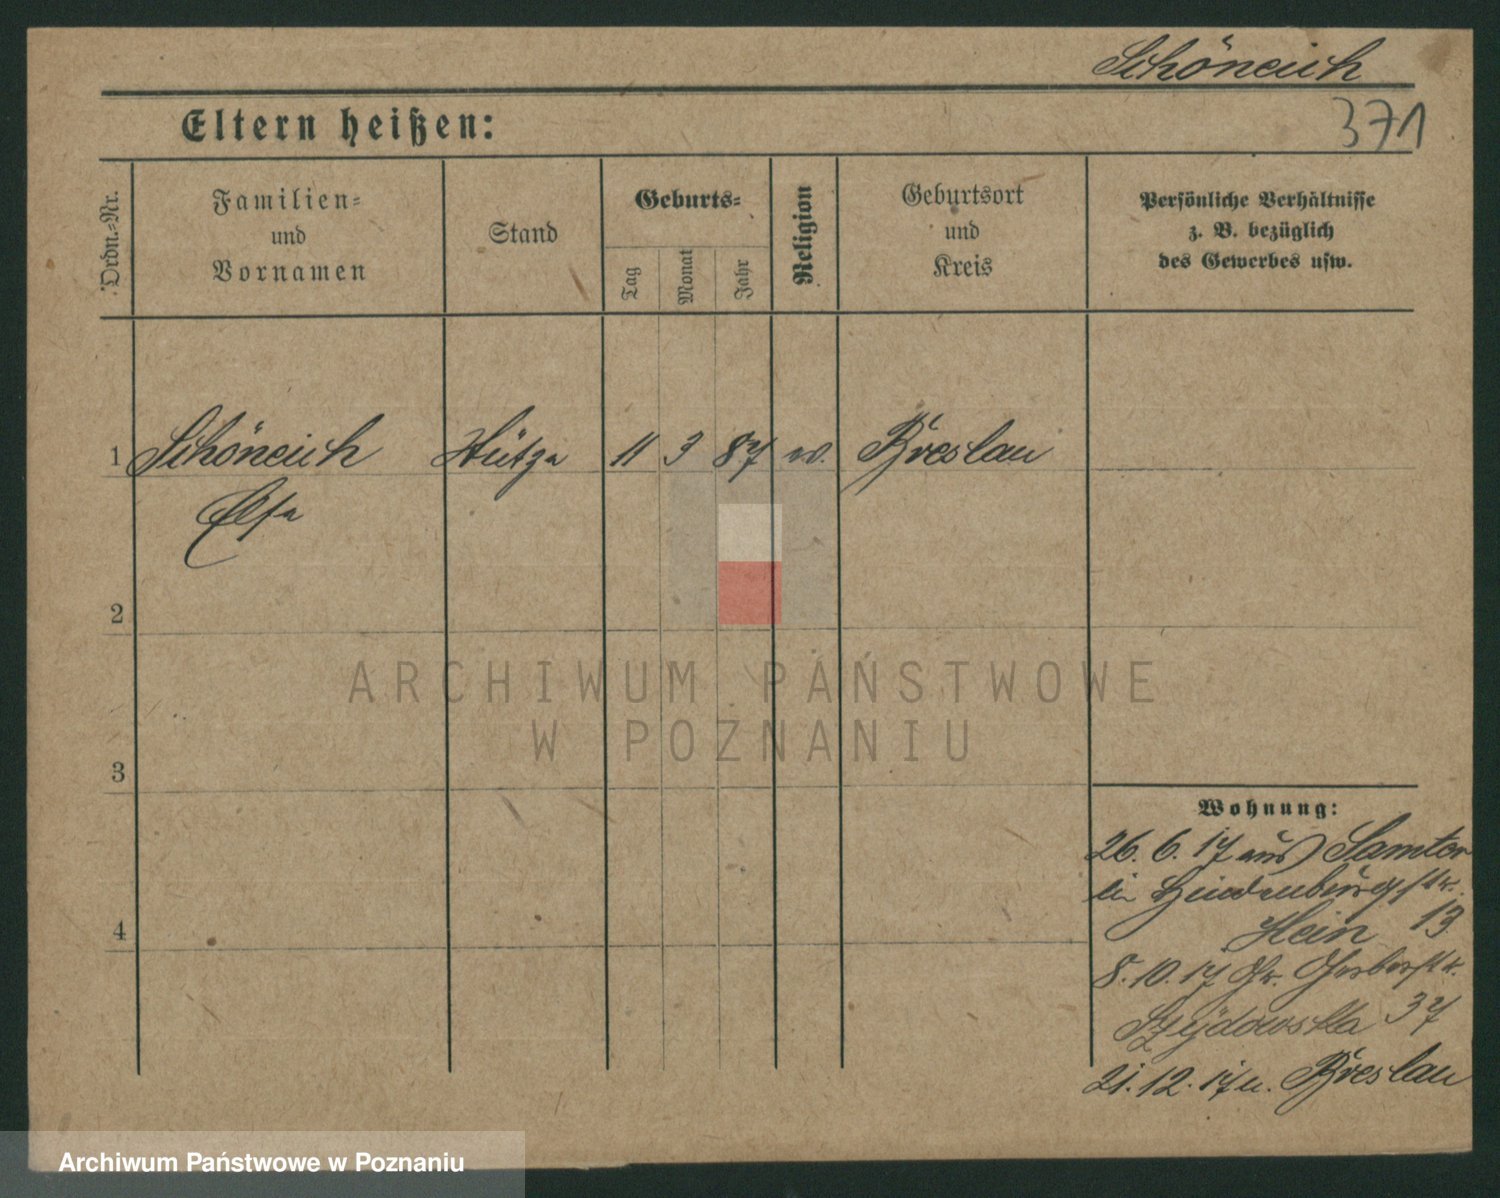 Schöneich
371
Eltern heißen:
Ordn.-Nr.
Familien-
und
Vornamen
Stand
Geburts-
Tag
Monat
Jahr
Religion
Geburtsort
und
Kreis
Persönliche Verhältnisse
z. B. bezüglich
des Gewerbes usw.
1 Schöneich 11 3 87 Breslau
Elsa
2
3
4
ARCHIWUM PAŃSTWOWE
W POZNANIU
Wohnung:
26. 6. 17 aus Samter
in Hindenburgstr.
Hein 13
8. 10. 17 Gr. Gerberstr.
Szydowska 37
21. 12. 17 n. Breslau
Archiwum Państwowe w Poznaniu